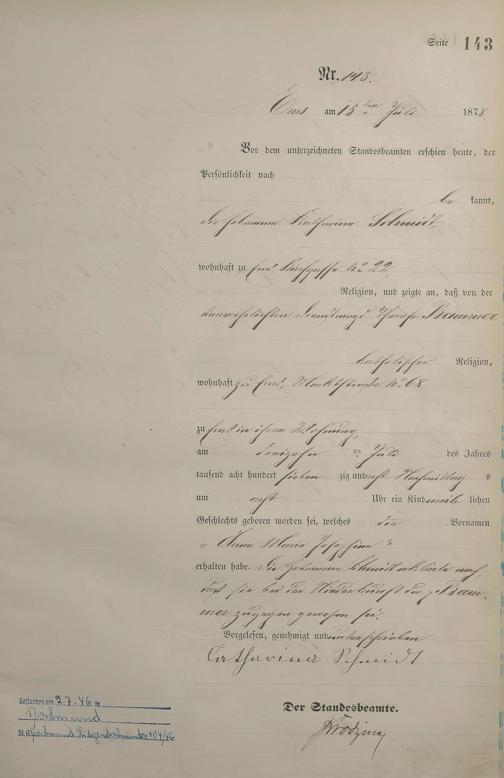 Seite 143
Nr. 143.
Ems am 15ten Juli 1878
Vor dem unterzeichneten Standesbeamten erschien heute, der
Persönlichkeit nach
be kannt,
die Hebamme Katharina Schmidt,
wohnhaft zu Ems, Kirchgasse No 22,
Religion, und zeigte an, daß von der
unverehelichten Dienstmagd
katholischer Religion,
wohnhaft zu Ems, Marktstraße No 68
zu Ems in ihrer Wohnung,
am dreizehn ten Juli des Jahres
tausend acht hundert sieben zig und acht Nachmittags
um acht Uhr ein Kind weib lichen
Geschlechts geboren worden sei, welches die Vornamen
„Anna Maria Josephine“
erhalten habe. Die Hebamme Schmidt erklärte noch,
daß sie bei der Niederkunft der
zugegen gewesen sei.
Vorgelesen, genehmigt und unterschrieben
Catharina Schmidt
Der Standesbeamte.
Gestorben am 2.7.46 in
Dortmund